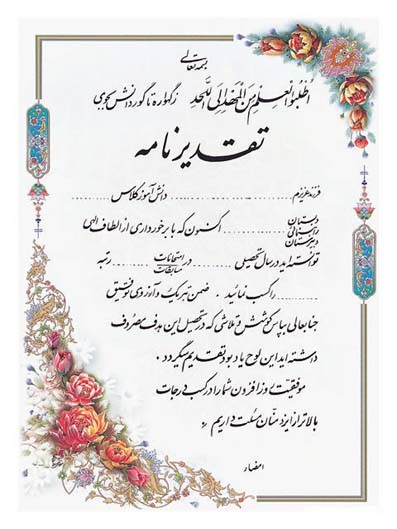 بسمه تعالی
اطلبوا العلم من المهد الی اللحد ز گهواره تا گور دانش بجوی
تقدیرنامه
فرزند عزیزم .................... دانش آموز کلاس ....................
دبستان
راهنمائی
دبیرستان
.................... اکنون که با برخورداری از الطاف الهی
توانسته اید در سال تحصیلی .................... در امتحانات
مسابقات
رتبه
.................... را کسب نمائید . ضمن تبریک و آرزوی توفیق
جنابعالی بپاس کوشش و تلاشی که در تحصیل این هدف مصروف
داشته اید این لوح یادبود تقدیم میگردد .
موفقیت روزافزون شما را در کسب درجات
بالاتر از ایزد منان مسئلت داریم
امضاء